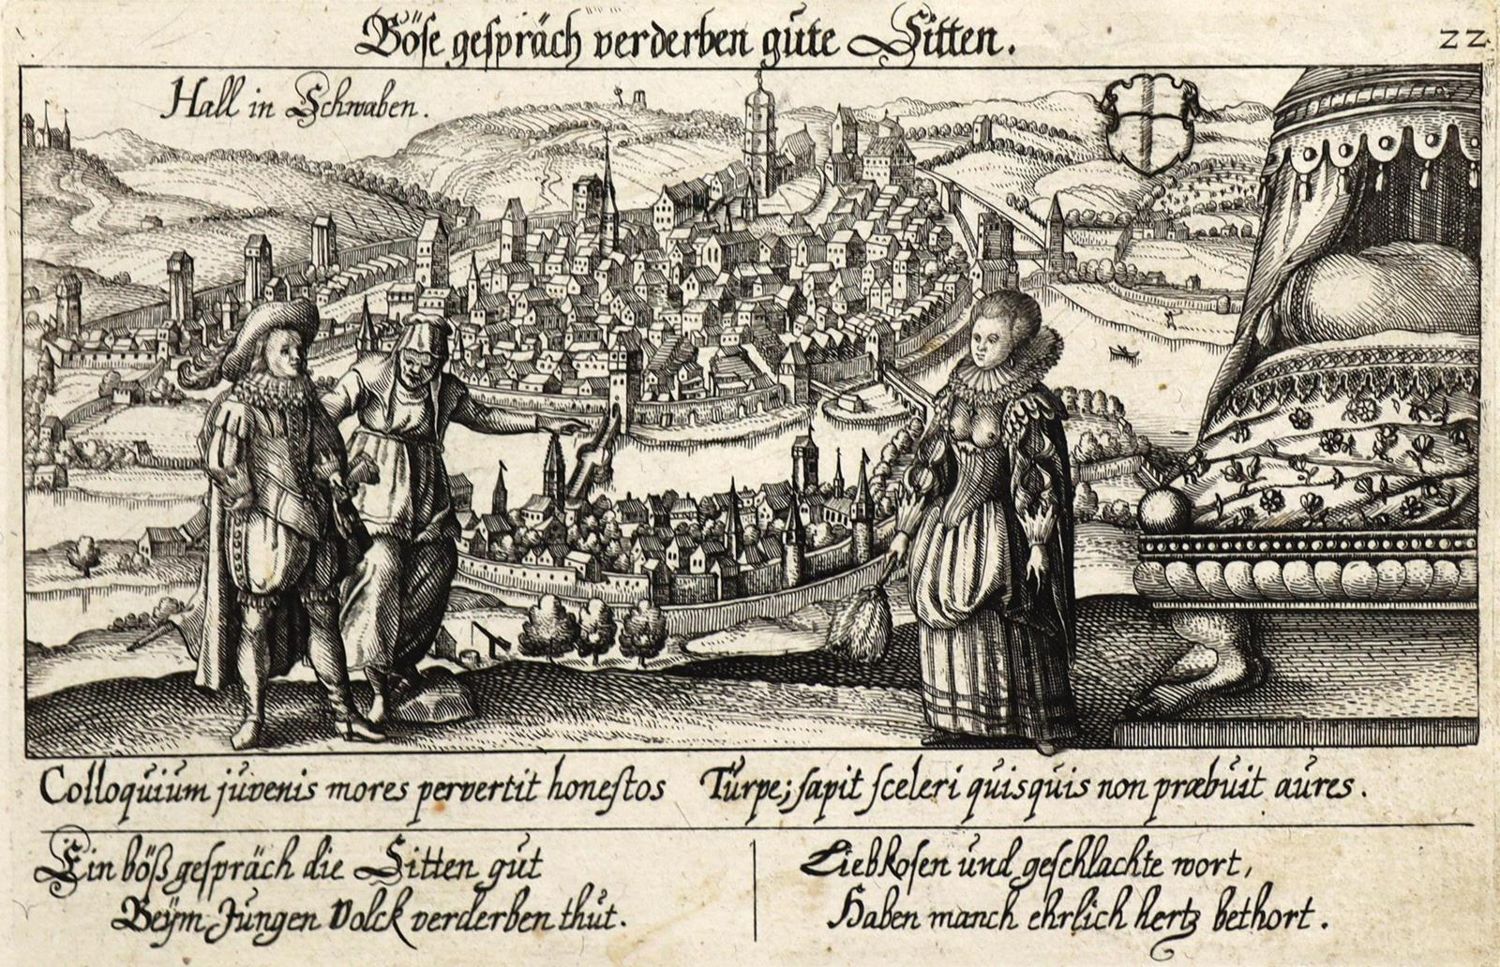 Böse gespräch verderben gute Sitten.
22
Hall in Schwaben.
Colloquium juvenis mores pervertit honestos Turpe; sapit sceleri quisquis non præbuit aures.
Ein böß gespräch die Sitten gut
Beÿm Jungen Volck verderben thut.
Liebkosen und geschlachte wort,
Haben manch ehrlich hertz bethort.